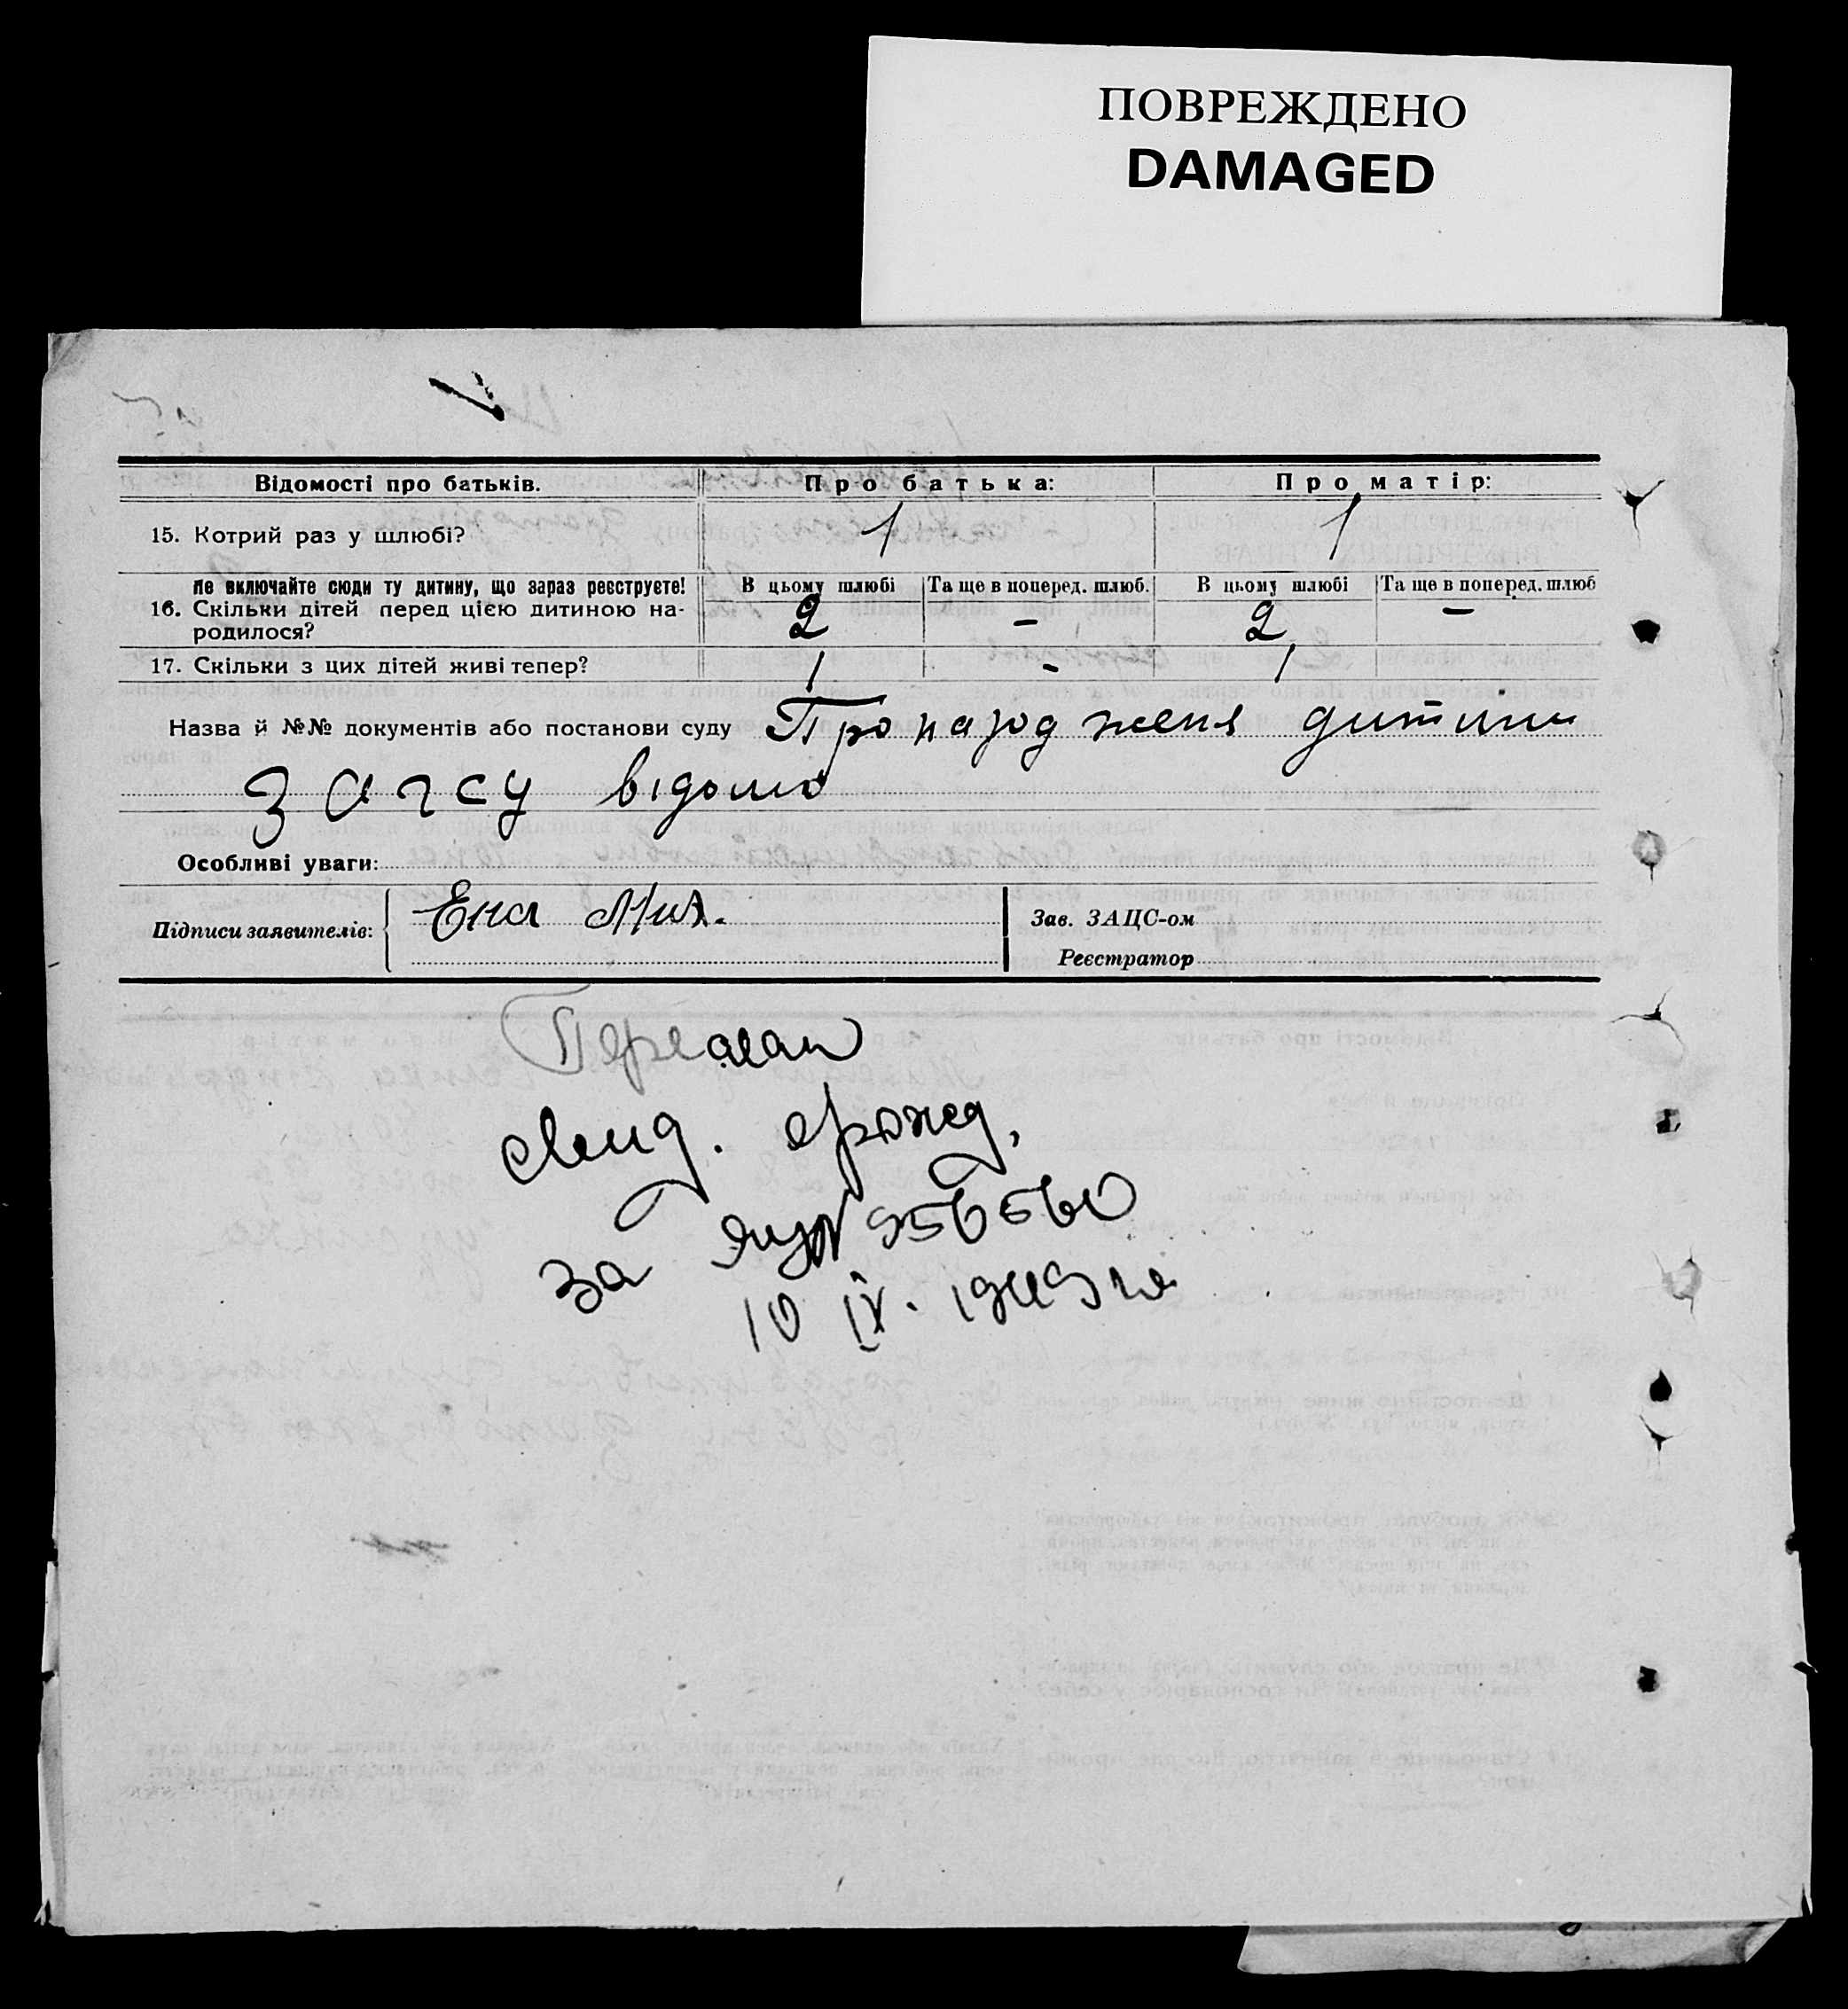 ПОВРЕЖДЕНО
DAMAGED
Відомості про батьків. Про батька: Про матір:
15. Котрий раз у шлюбі? 1 1
не включайте сюди ту дитину, що зараз реєструєте! В цьому шлюбі Та ще в поперед. шлюб. В цьому шлюбі Та ще в поперед. шлюб
16. Скільки дітей перед цією дитиною на-
родилося? 2 - 2 -
17. Скільки з цих дітей живі тепер? 1 - 1
Назва й №№ документів або постанови суду Про народженя дитини
загсу відомо
Особливі уваги:
Підписи заявителів: Зав. ЗАЦС-ом
Реєстратор
свид. о рожд.
за 956560
10 IV. 1949 г.